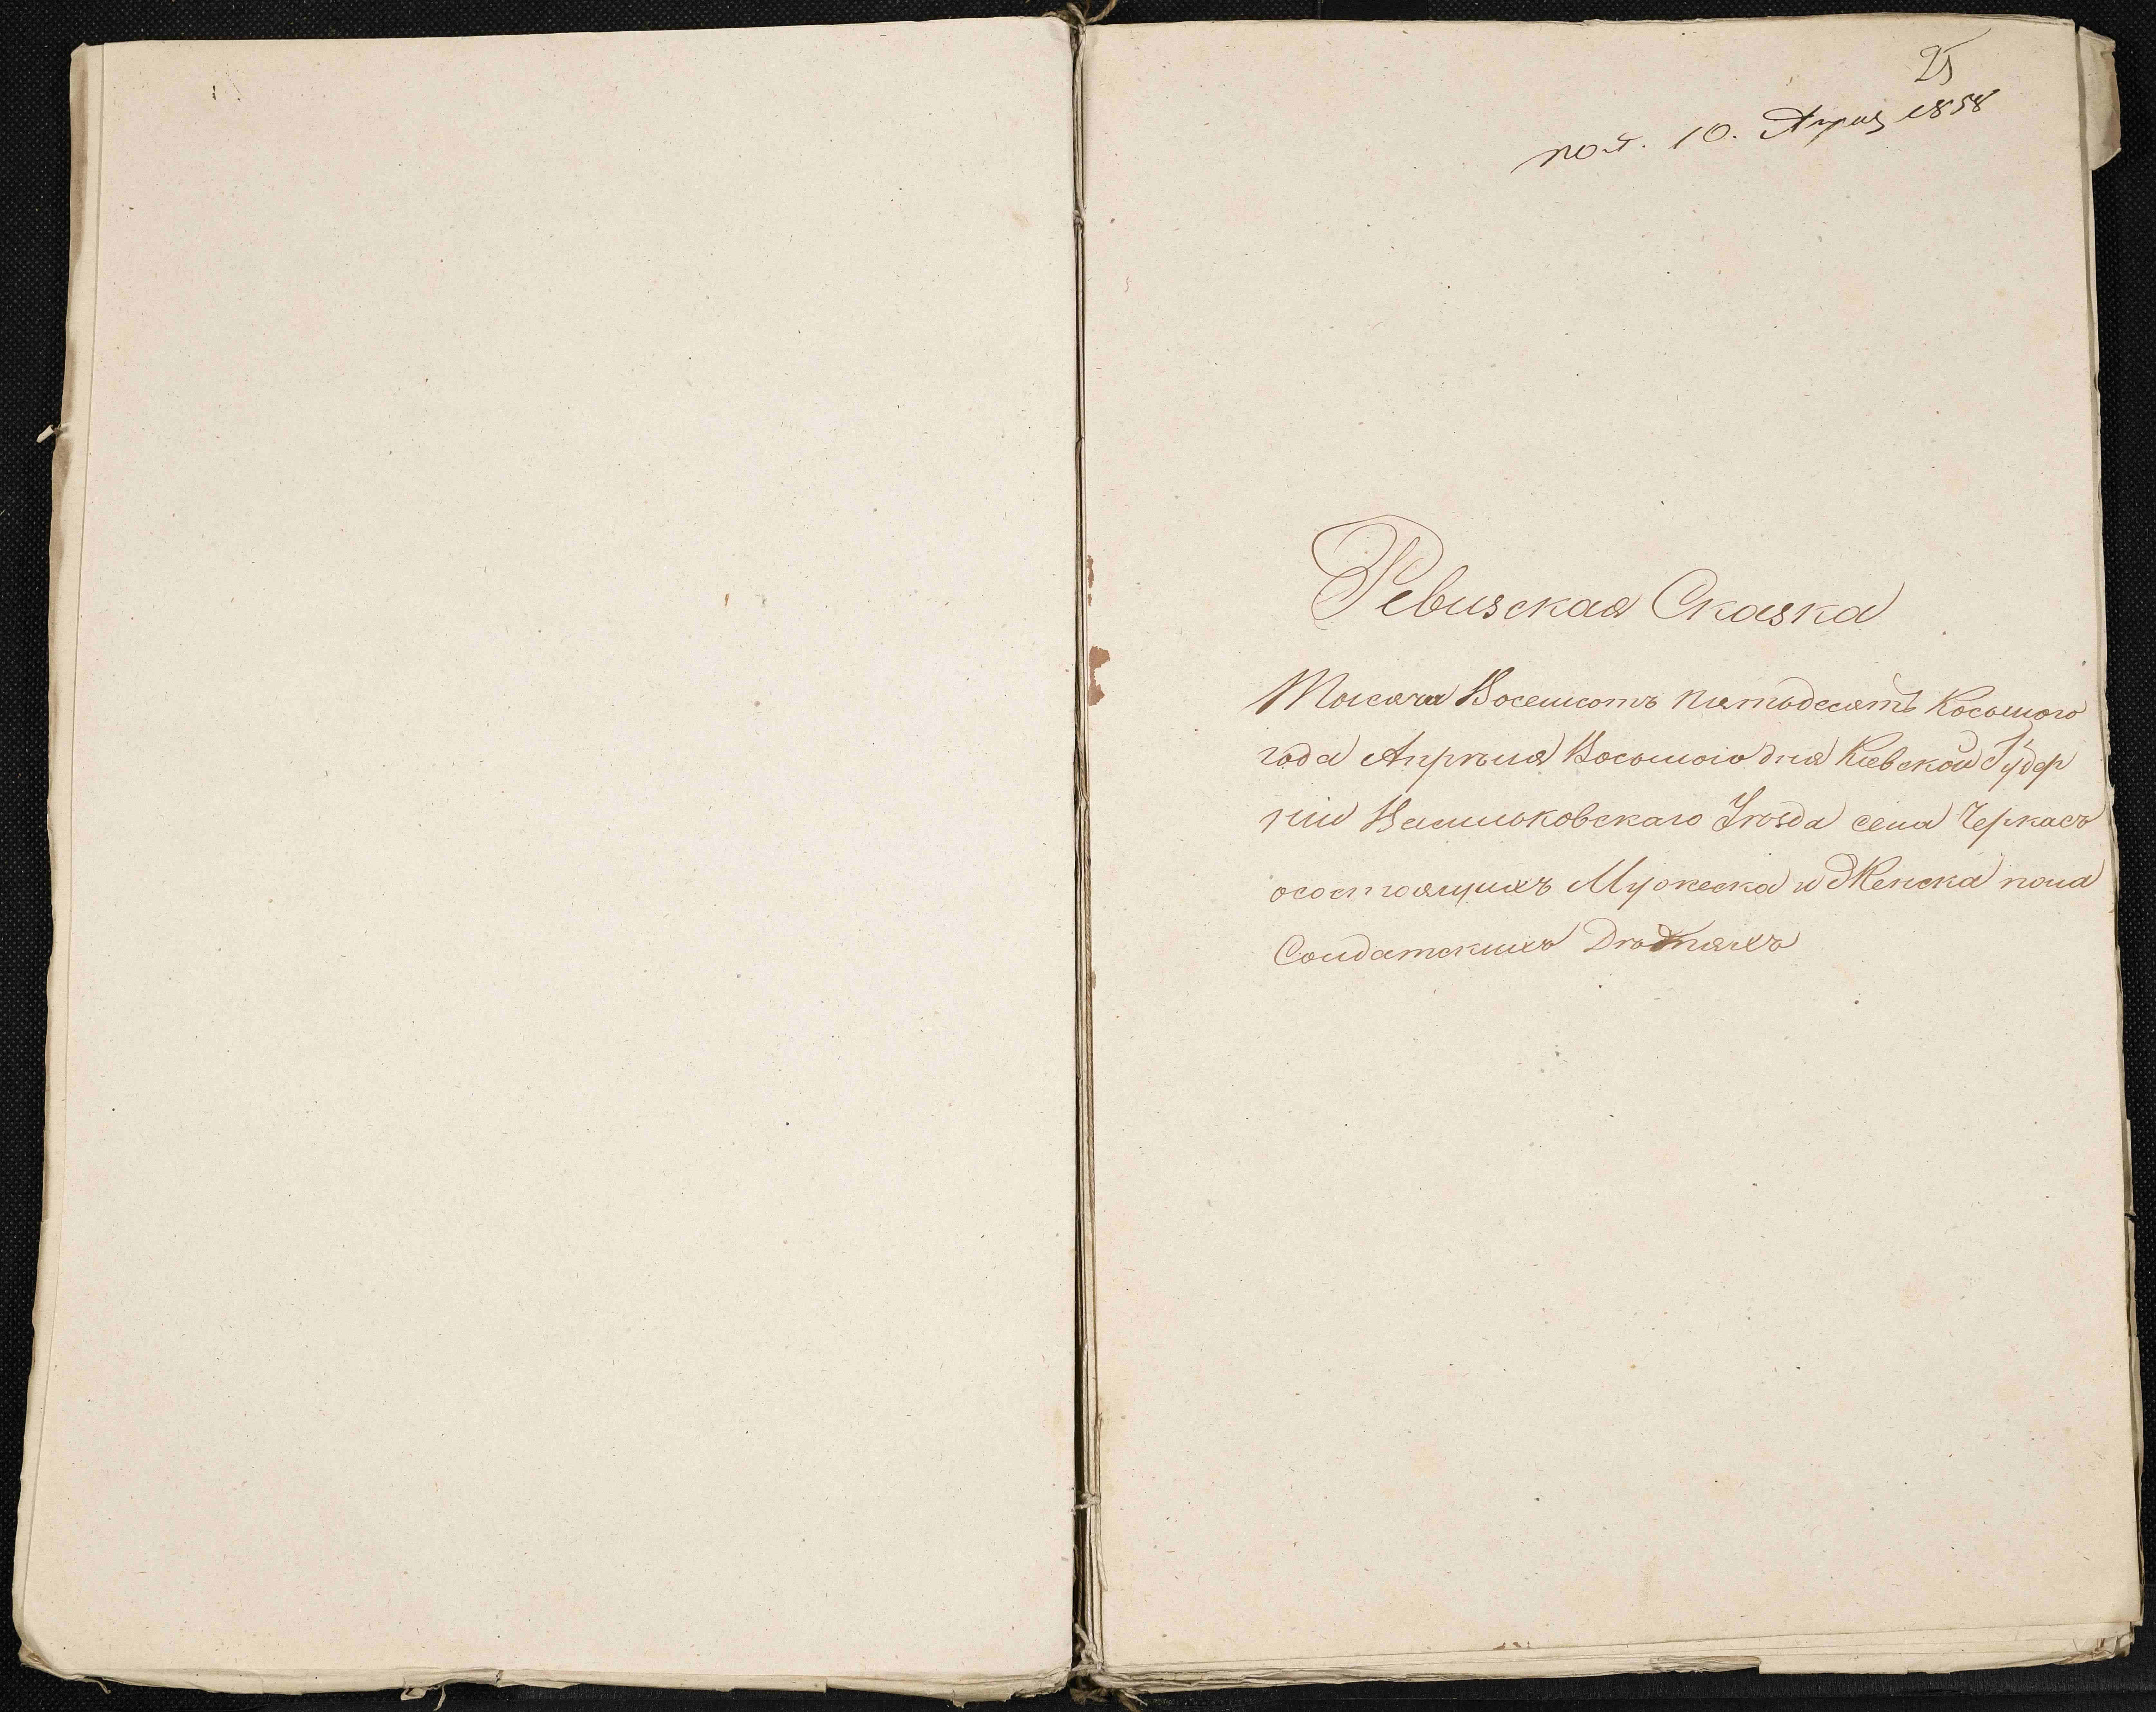 25
пол. 10. Апрѣл 1858
Ревизская Сказка
Тысяча Восемсотъ пятьдесятъ Восьмого
года Апрѣля Восьмого дня Киевской Губер
нии Васильковскаго Уѣзда села Черкасъ
осостоящихъ Мужеска и Женска пола
Солдатскихъ Дѣтяхъ